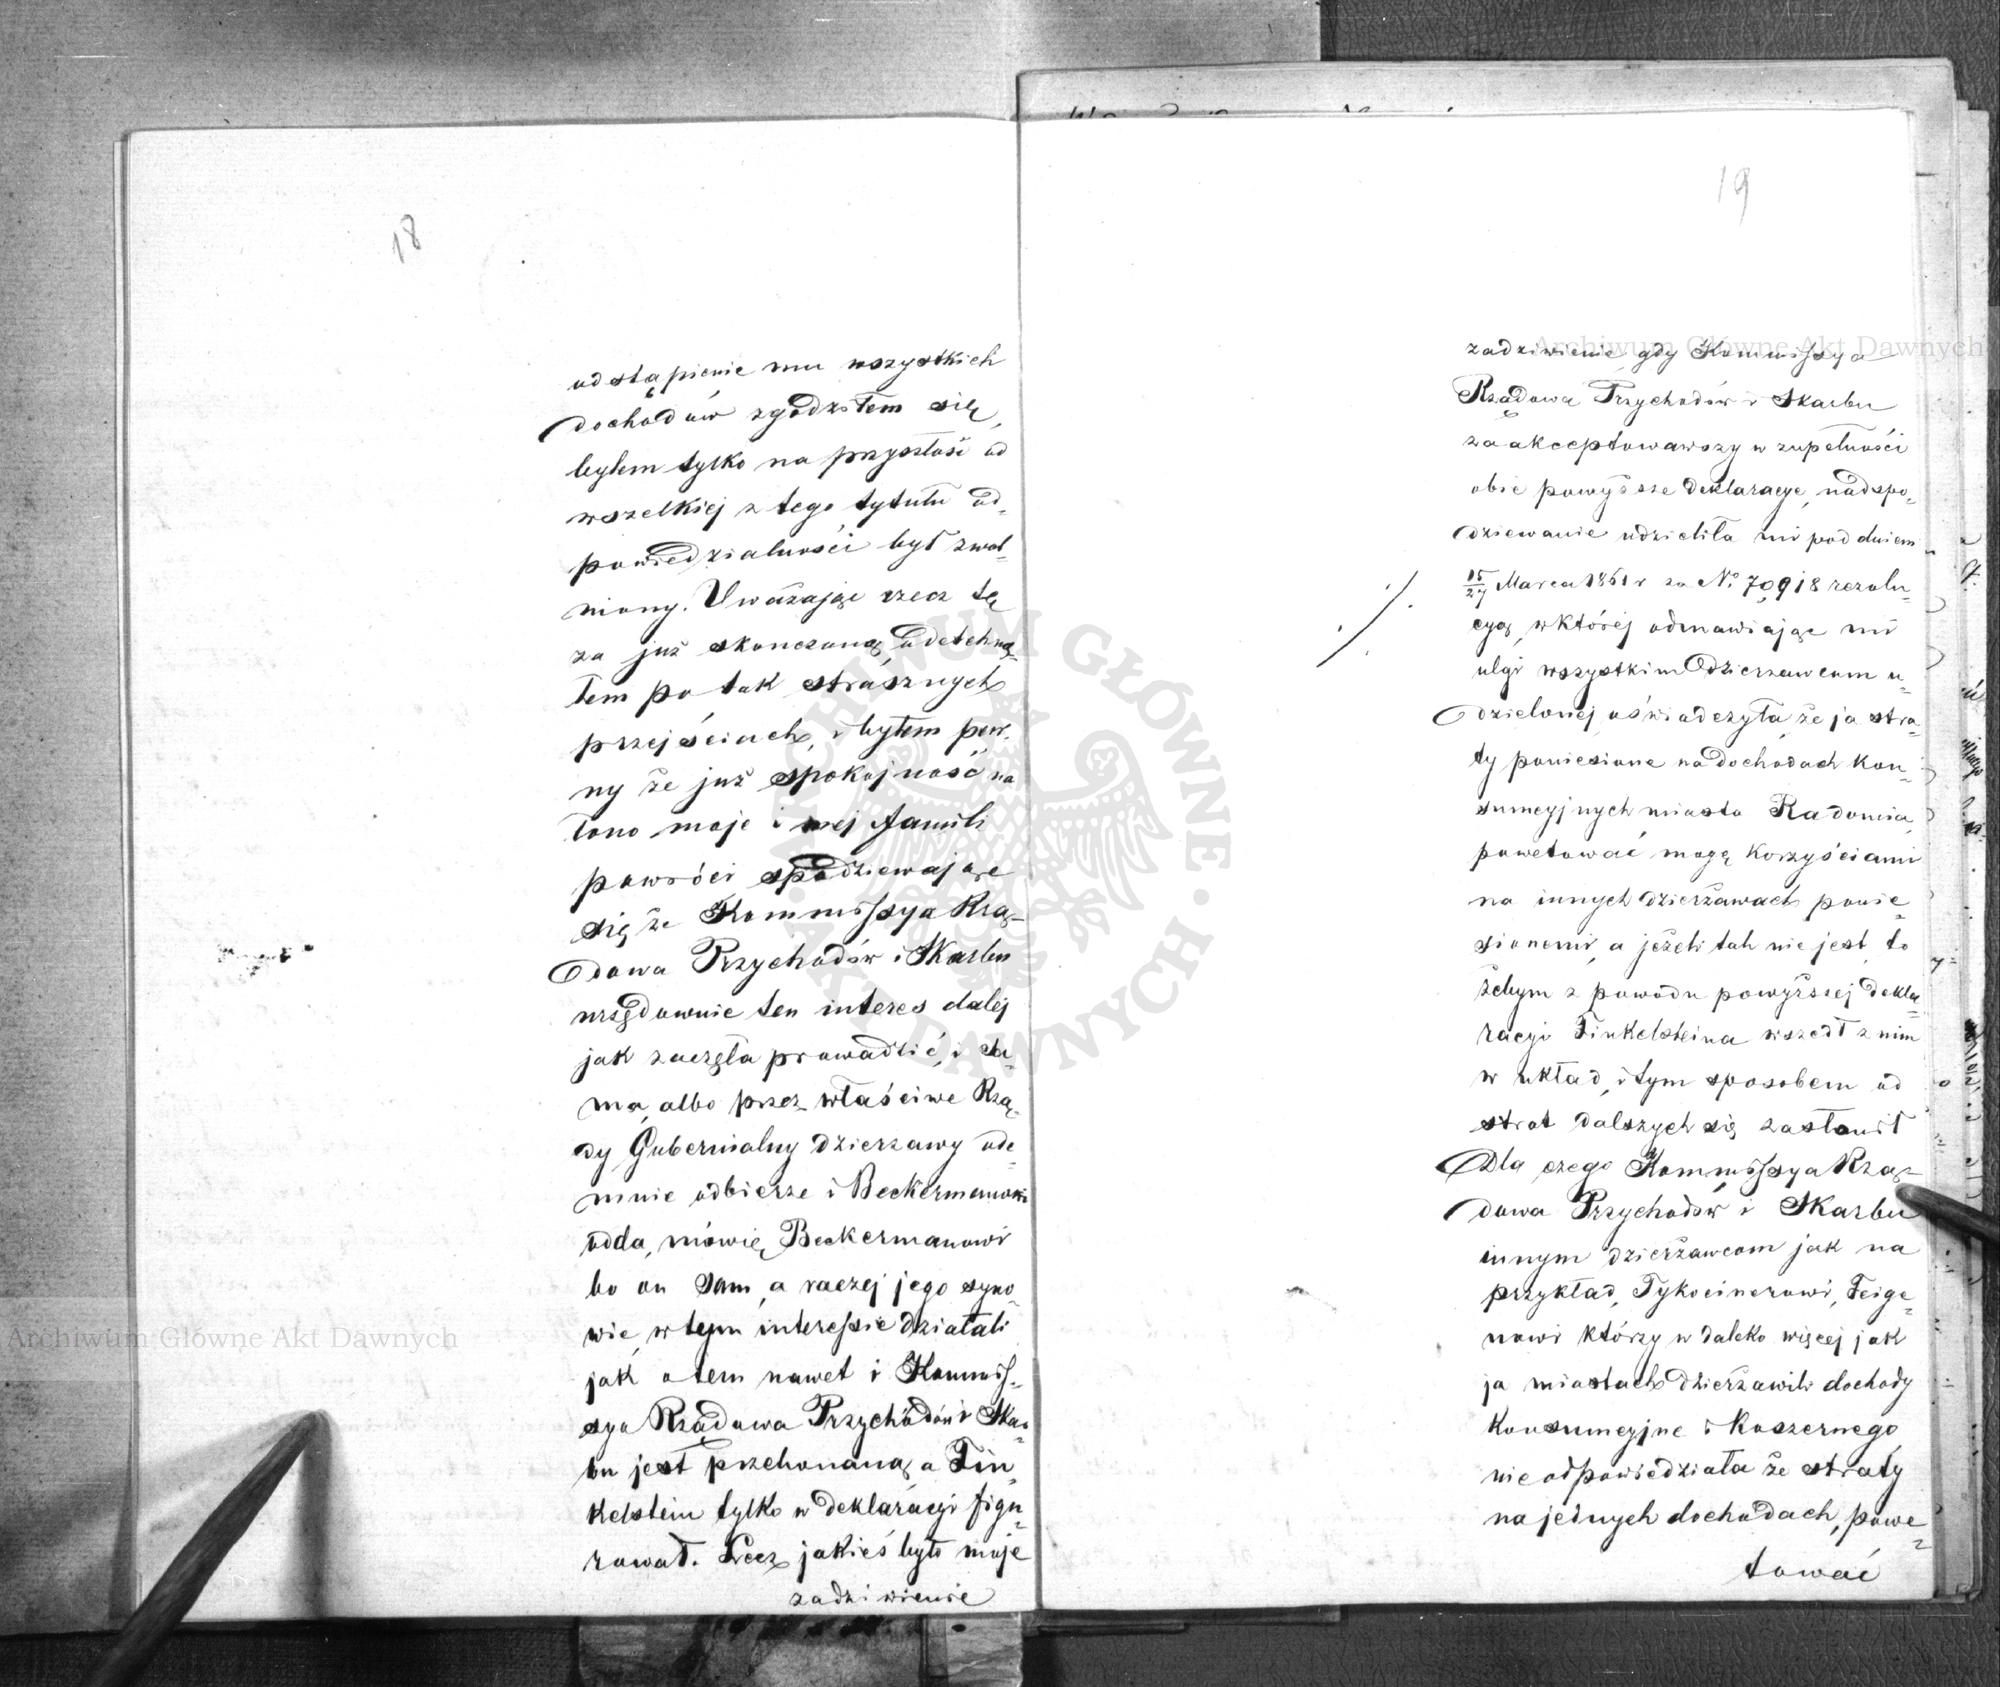 18
odstąpienie mu wszystkich
dochodów zgodziłem się,
bylem tylko na przyszłość od
wszelkiej z tego tytułu od„
powiedzialności był zwol„
niony. Uważając rzecz tę
za już skończoną, odetchną„
łem po tak strasznych
przejściach, i byłem pew„
ny że już spokojność na
łono moje i mej familii
powróci spodziewając
się że Kommissya Rzą„
dowa Przychodów i Skarbu
urzędownie ten interes dalej
jak zaczęła prowadzić, i sa„
ma, albo przez właściwe Rzą„
dy Gubernialny dzierzawy ode„
mnie odbierze i Beckermanowi
odda, mówię Beckermanowi
bo on sam, a raczej jego syno„
wie, w tym interessie działali
jak o tem nawet i Kommis„
sya Rządowa Przychodów i Skar„
bu jest przekonaną, a Fin„
kelstein tylko w deklaracyi figu„
rował. Lecz jakieś było moje
zadziwienie
19
zadziwienie, gdy Kommissya
Rządowa Przychodów i Skarbu
zaakceptowawszy w zupełności
obie powyższe deklaracye, nadspo„
dziewanie udzieliła mi pod dniem
15/27 Marca 1861 r za No. 70918 rezolu„
cyą, w której odmawiając mi
ulgi wszystkim Dzierzawcom u„
dzielonej, oświadczyła, że ja stra„
ty poniesione na dochodach kon„
sumcyjnych miasta Radomia,
powetować mogę korzyściami
na innych dzierżawach ponie„
sionemi, a jeżeli tak nie jest, to
żebym z powodu powyższej dekla„
racyi Finkelsteina wszedł z nim
w układ, i tym sposobem od
strat dalszych się zasłonił
Dla czego Kommissya Rzą„
dowa Przychodów i Skarbu
innym dzierżawcom jak na
przykład, Tykocinerowi, Feige„
nowi którzy w daleko więcej jak
ja miastach dzierżawili dochody
konsumcyjne i koszernego
nie odpowiedziała że straty
na jednych dochodach, powe„
tować
Archiwum Główne Akt Dawnych
Archiwum Główne Akt Dawnych
ARCHIWUM GŁÓWNE · AKT DAWNYCH ·